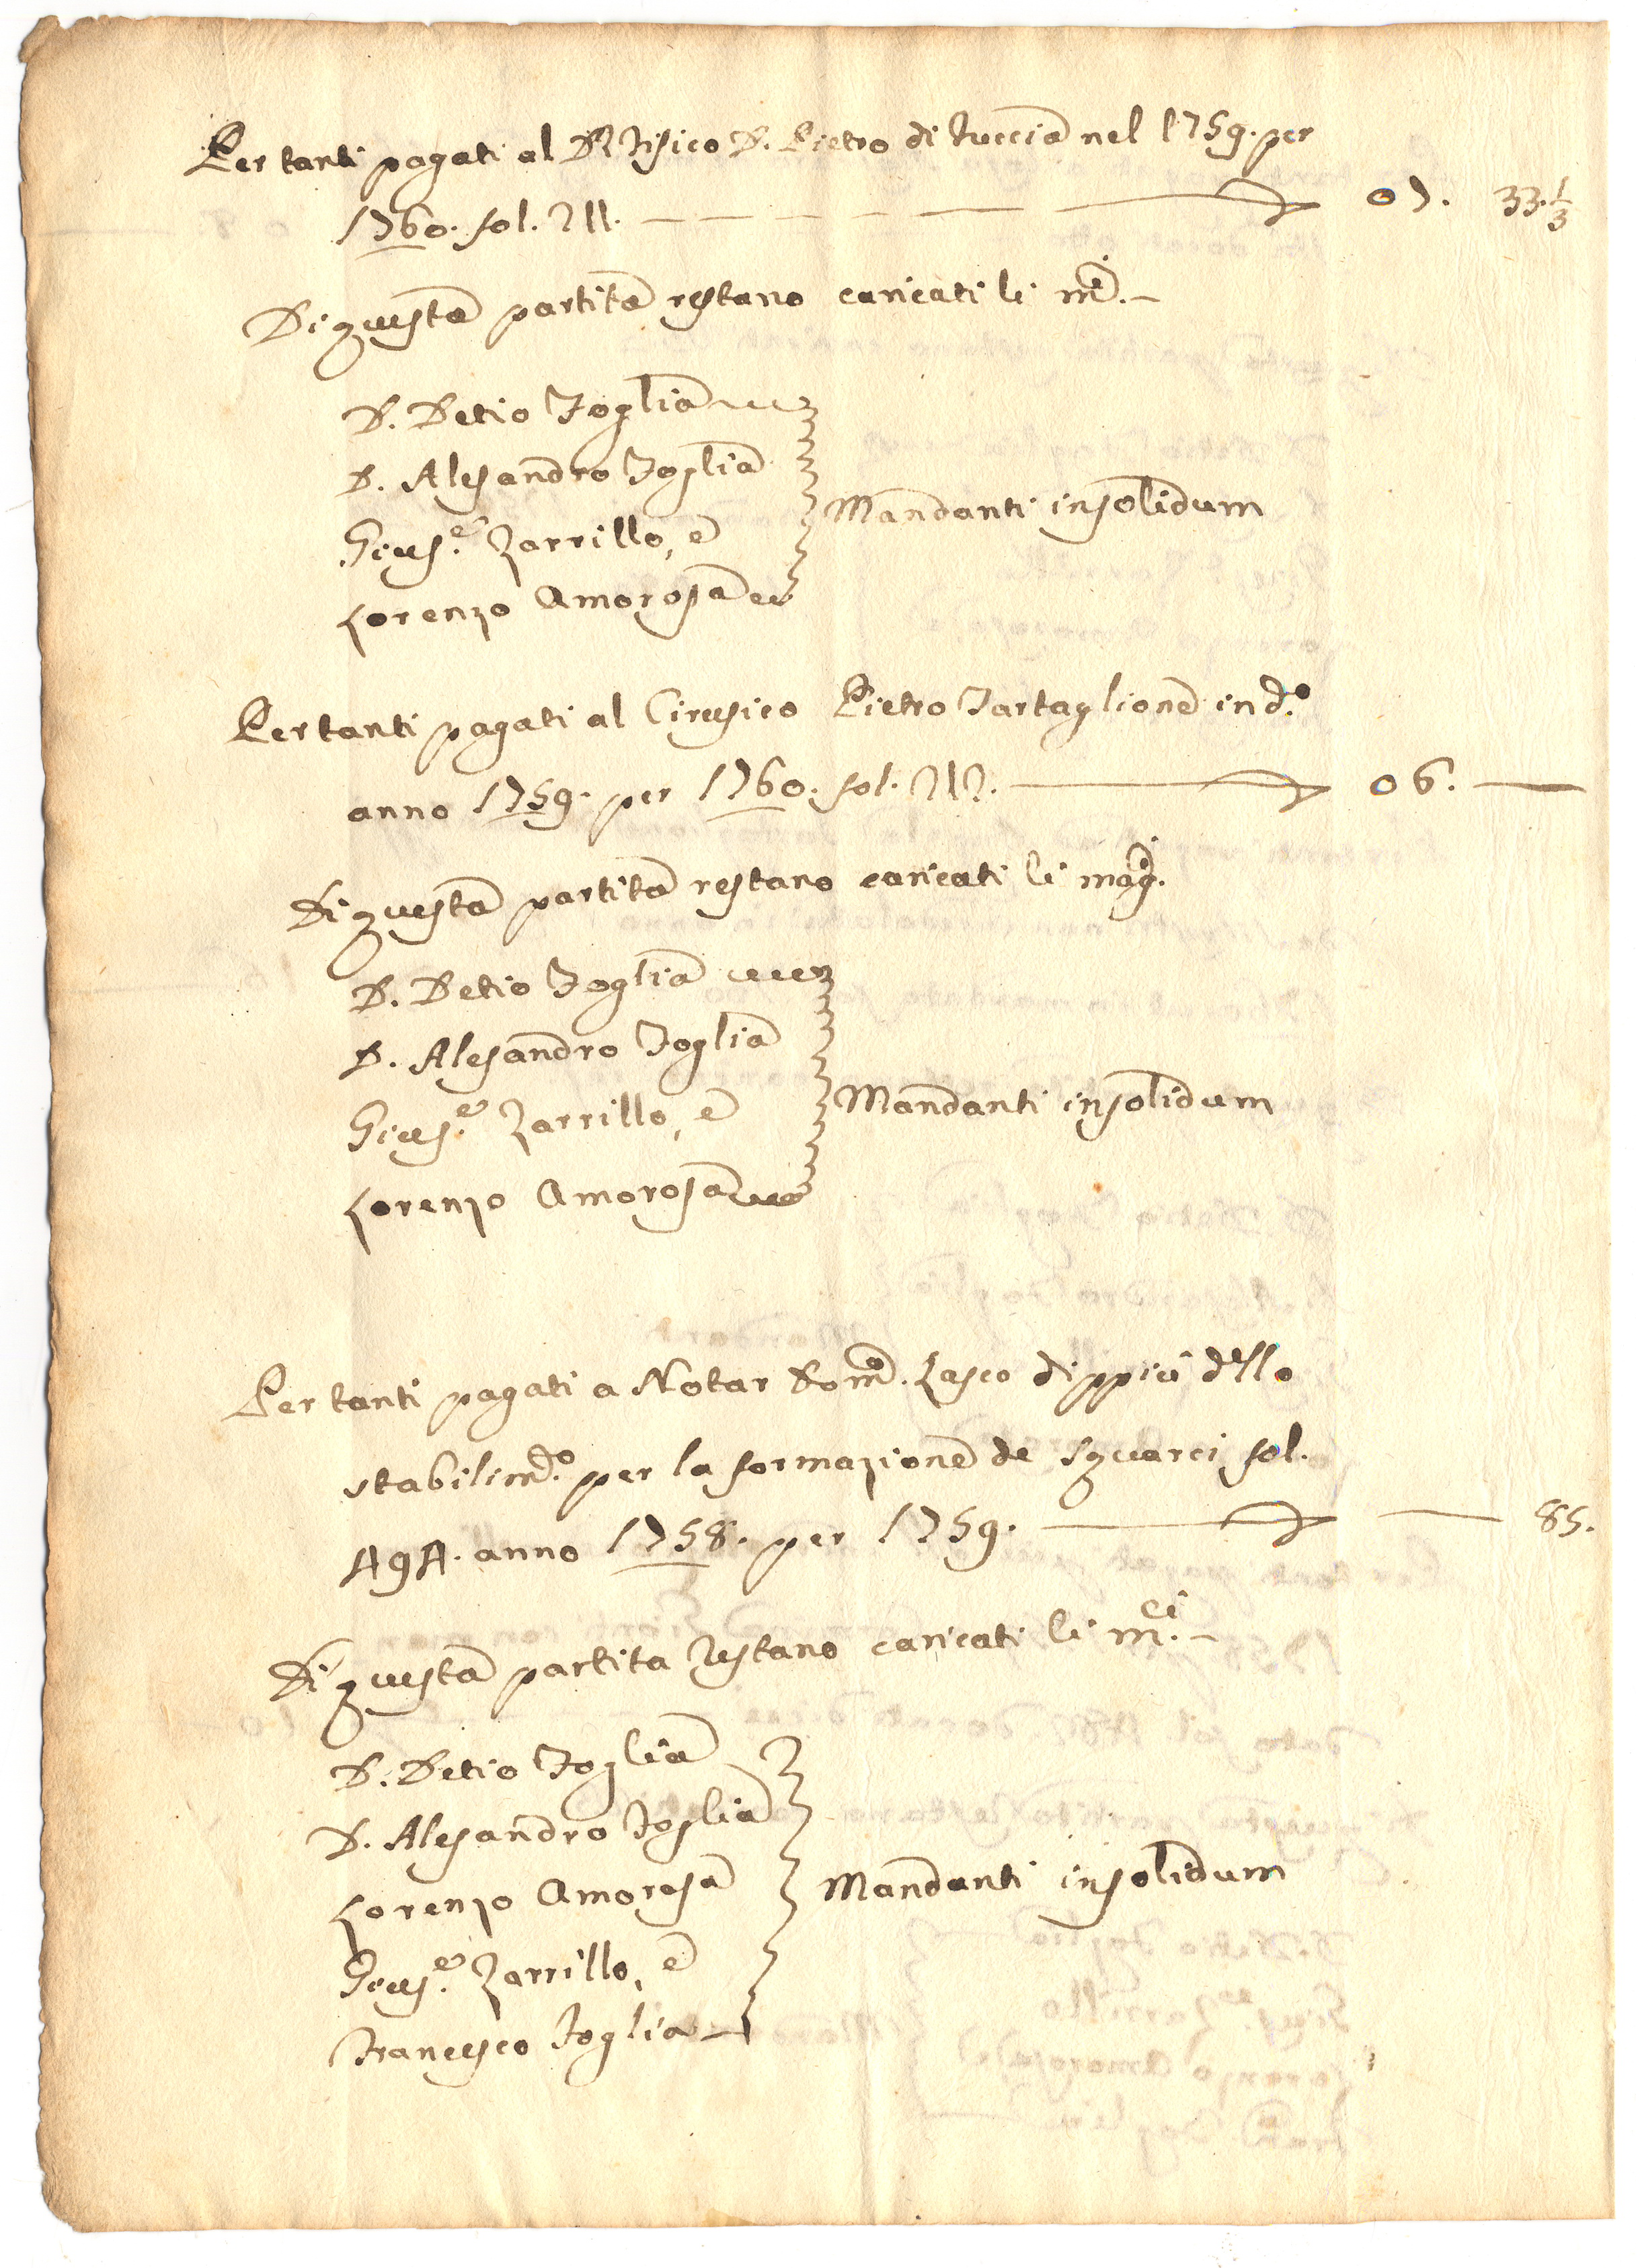 Per tanti pagati al D.r Fisico D. Pietro di Tuccia nel 1759. per
1760. fol. 211. 07. 33. 1/3
Di questa partita restano caricati li m.ci
D. Detio Foglia
D. Alesandro Foglia
Gius.e Zarrillo, e
Lorenzo Amorosa
Mandanti insolidum
Per tanti pagati al Cirusico Pietro Tartaglione in d.o
anno 1759. per 1760. fol. 212. 06.
Di questa partita restano caricati li mag.ci
D. Detio Foglia
D. Alesandro Foglia
Gius.e Zarrillo, e
Lorenzo Amorosa
Mandanti insolidum
Per tanti pagati a Notar Dom.co Zasco di ppiù dello
stabilim.to per la formazione de squarci fol.
anno 1758. per 1759. 85.
Di questa partita restano caricati li m.ci
D. Detio Foglia
D. Alesandro Foglia
Lorenzo Amorosa
Gius.e Zarrillo, e
Francesco Foglia
Mandanti insolidum